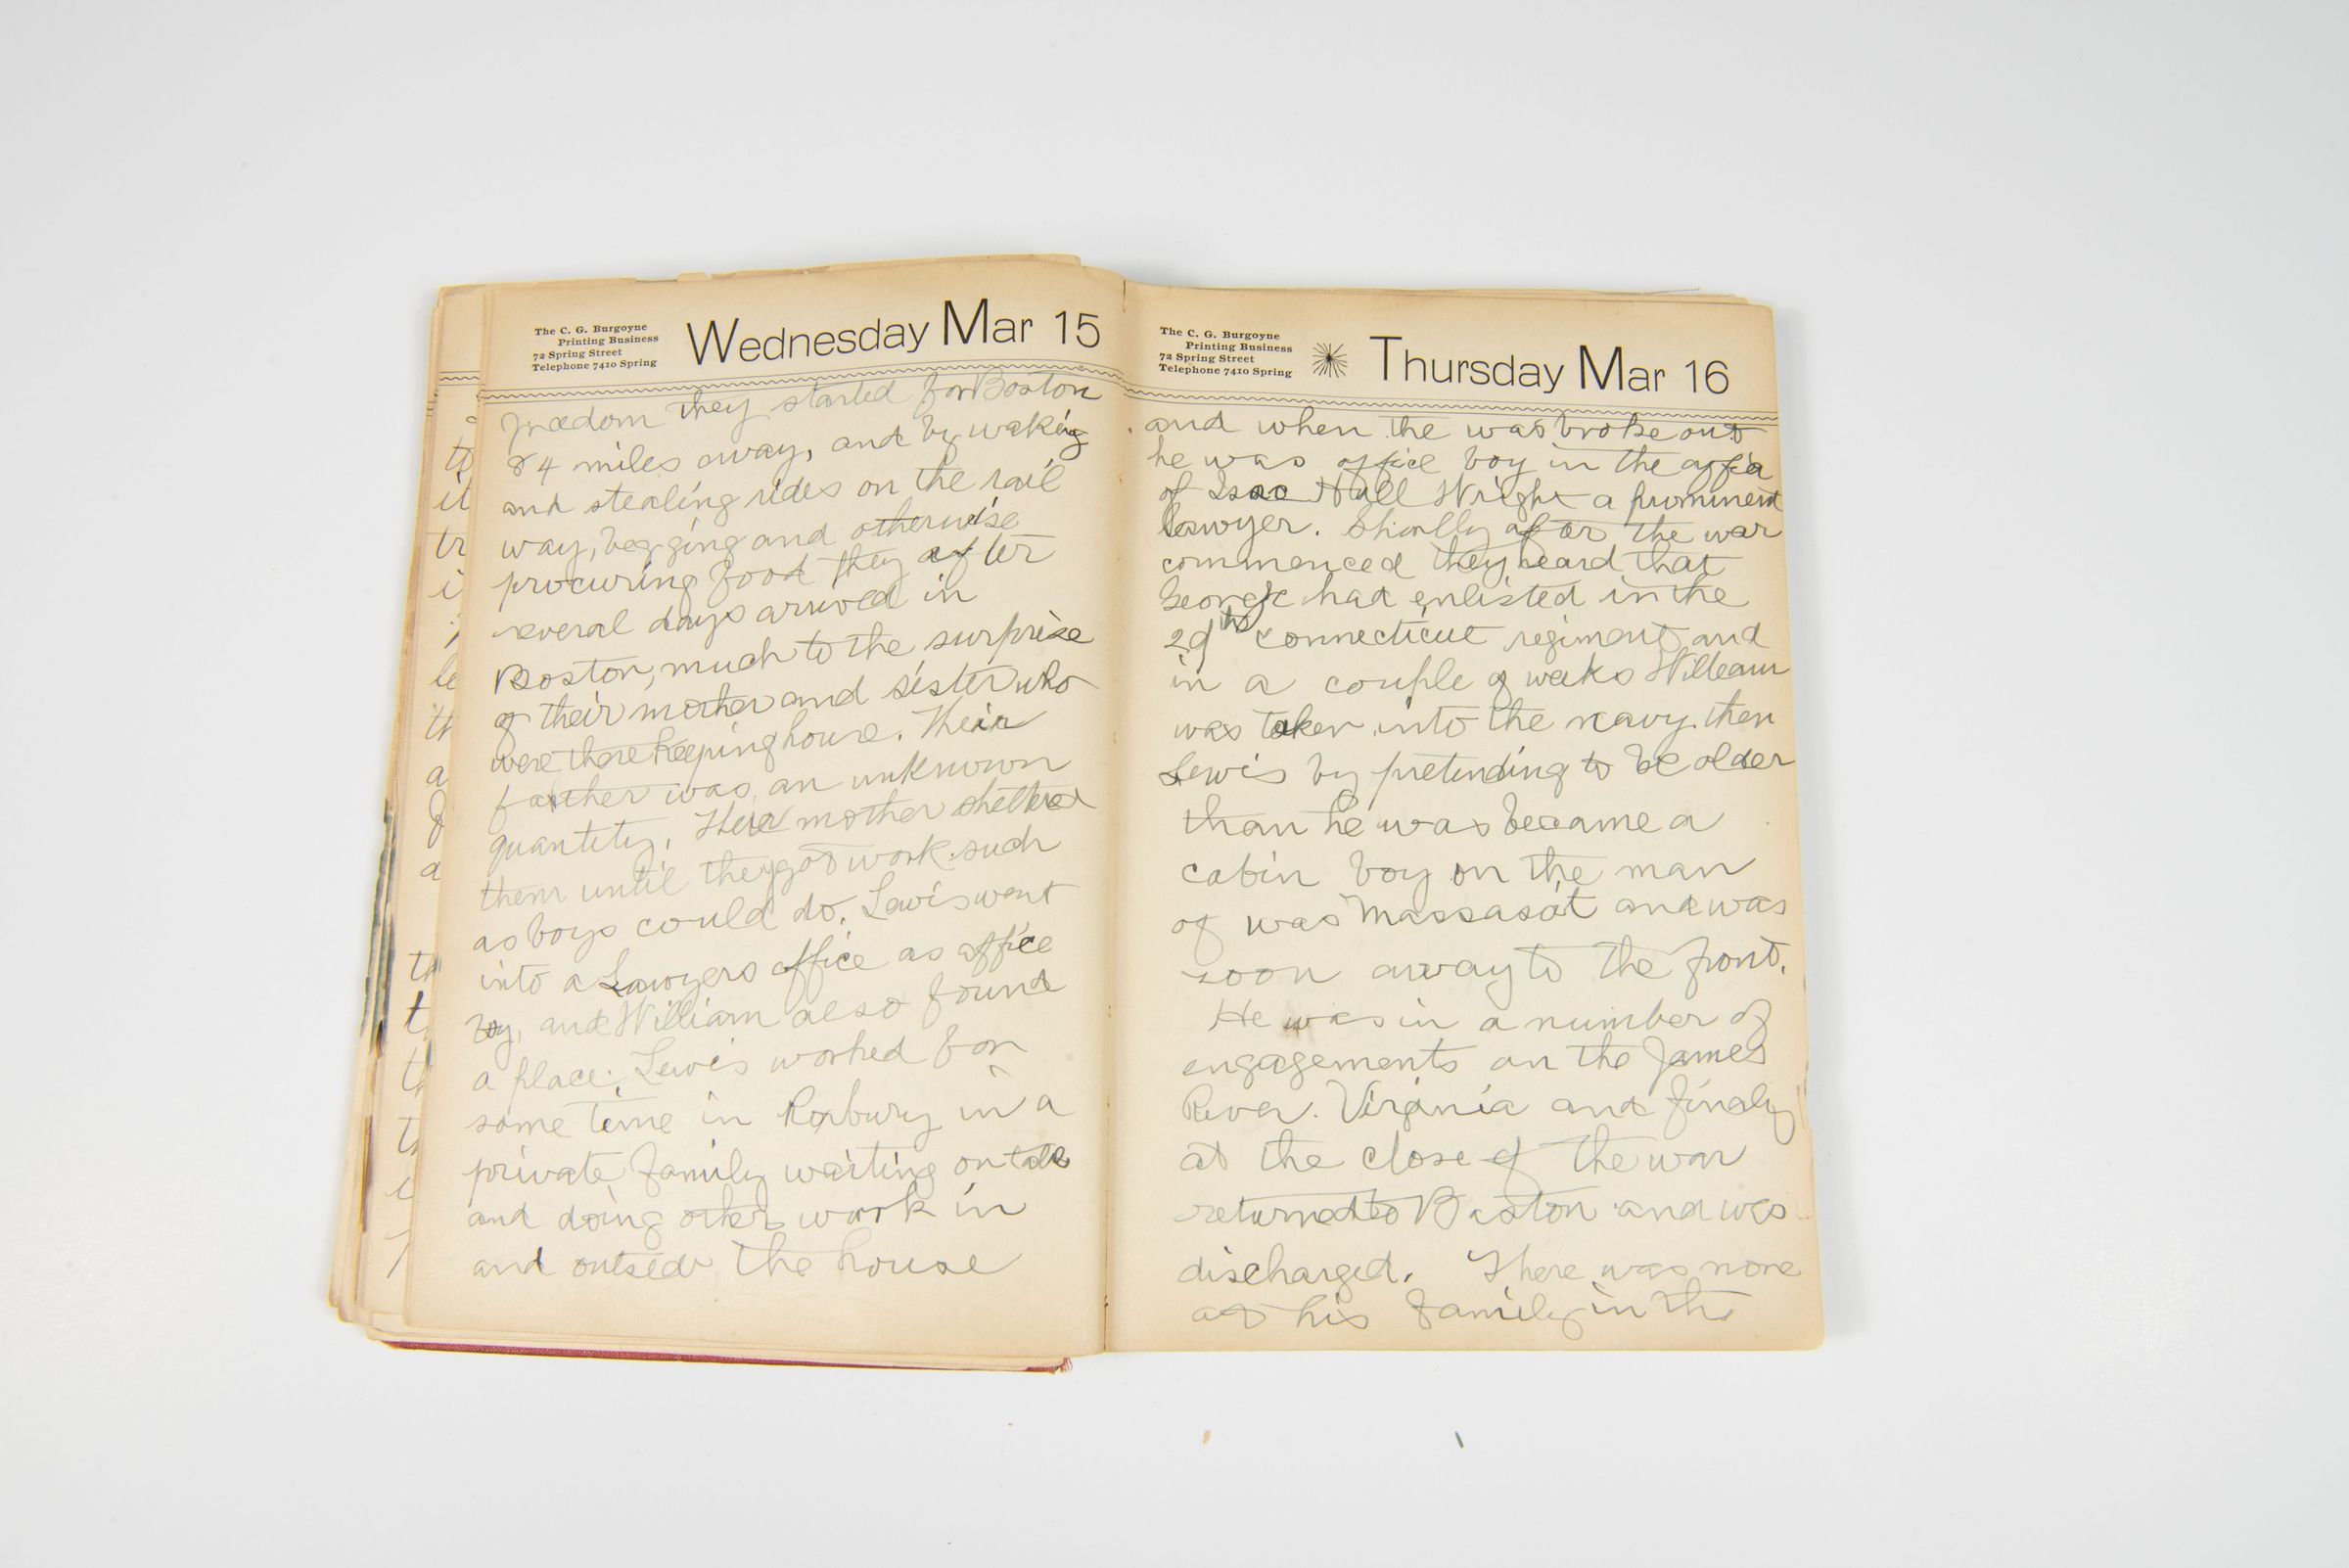 The C. G. Burgoyne
Printing Business
72 Spring Street
Telephone 7410 Spring
Wednesday Mar 15
freedom they started for Boston
84 miles away, and by walking
and stealing rides on the rail
way, begging and otherwise
procuring food they after
several days arrived in
Boston, much to the surprise
of their mother and sister who
were there keeping house. Their
farther was an unknown
quantity. Their mother sheltered
them until they got work such
as boys could do. Lewis went
into a Lawyers office as office
boy, and William also found
a place. Lewis worked for
some time in Roxbury in a
private family waiting on table
and doing other work in
and outside the house
The C. G. Burgoyne
Printing Business
72 Spring Street
Telephone 7410 Spring
Thursday Mar 16
and when the was broke out
he was office boy in the office
of Isac Hull Wright a prominent
lawyer. Shortly after the war
commenced they heard that
George had enlisted in the
29th connecticut regiment and
in a couple of weeks William
was taken into the navy. then
Lewis by pretending to be older
than he was became a
cabin boy on the man
of was Massasoit and was
soon away to the front.
He was in a number of
engagements on the James
River. Virginia and finaly
at the close of the war
returned to Boston and was
discharged. There was none
of his family in the